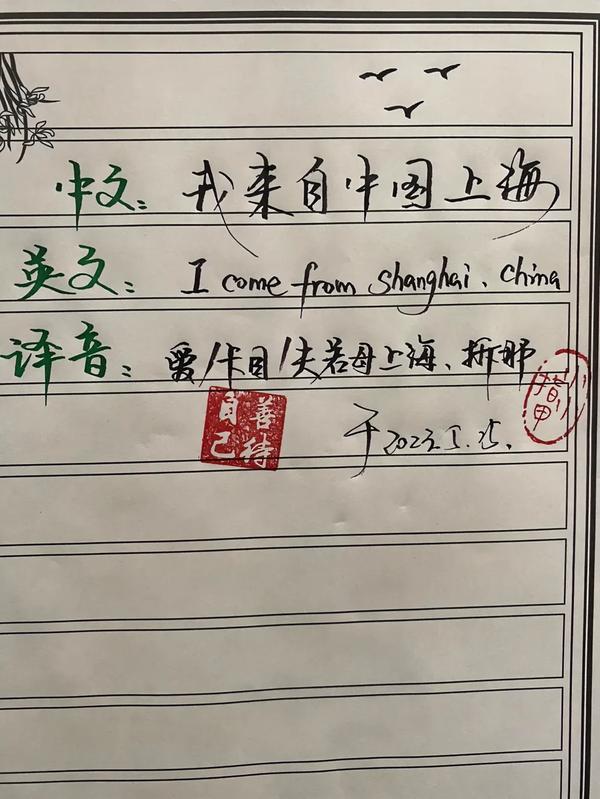 中文：我来自中国上海
英文：I come from Shanghai、China
译音：爱/卡目/夫若母上海、拆那
善待
自己
于2023.1.25.